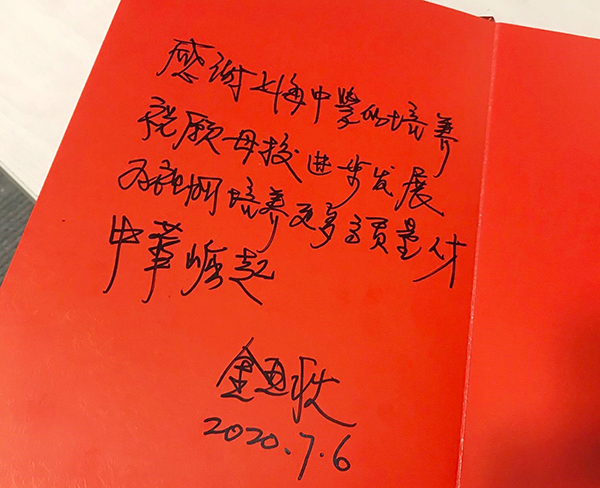 感谢上海中學的培养
祝愿母校进步发展
为祖国培养更多高质量人才
中華崛起
金亚秋
2020.7.6